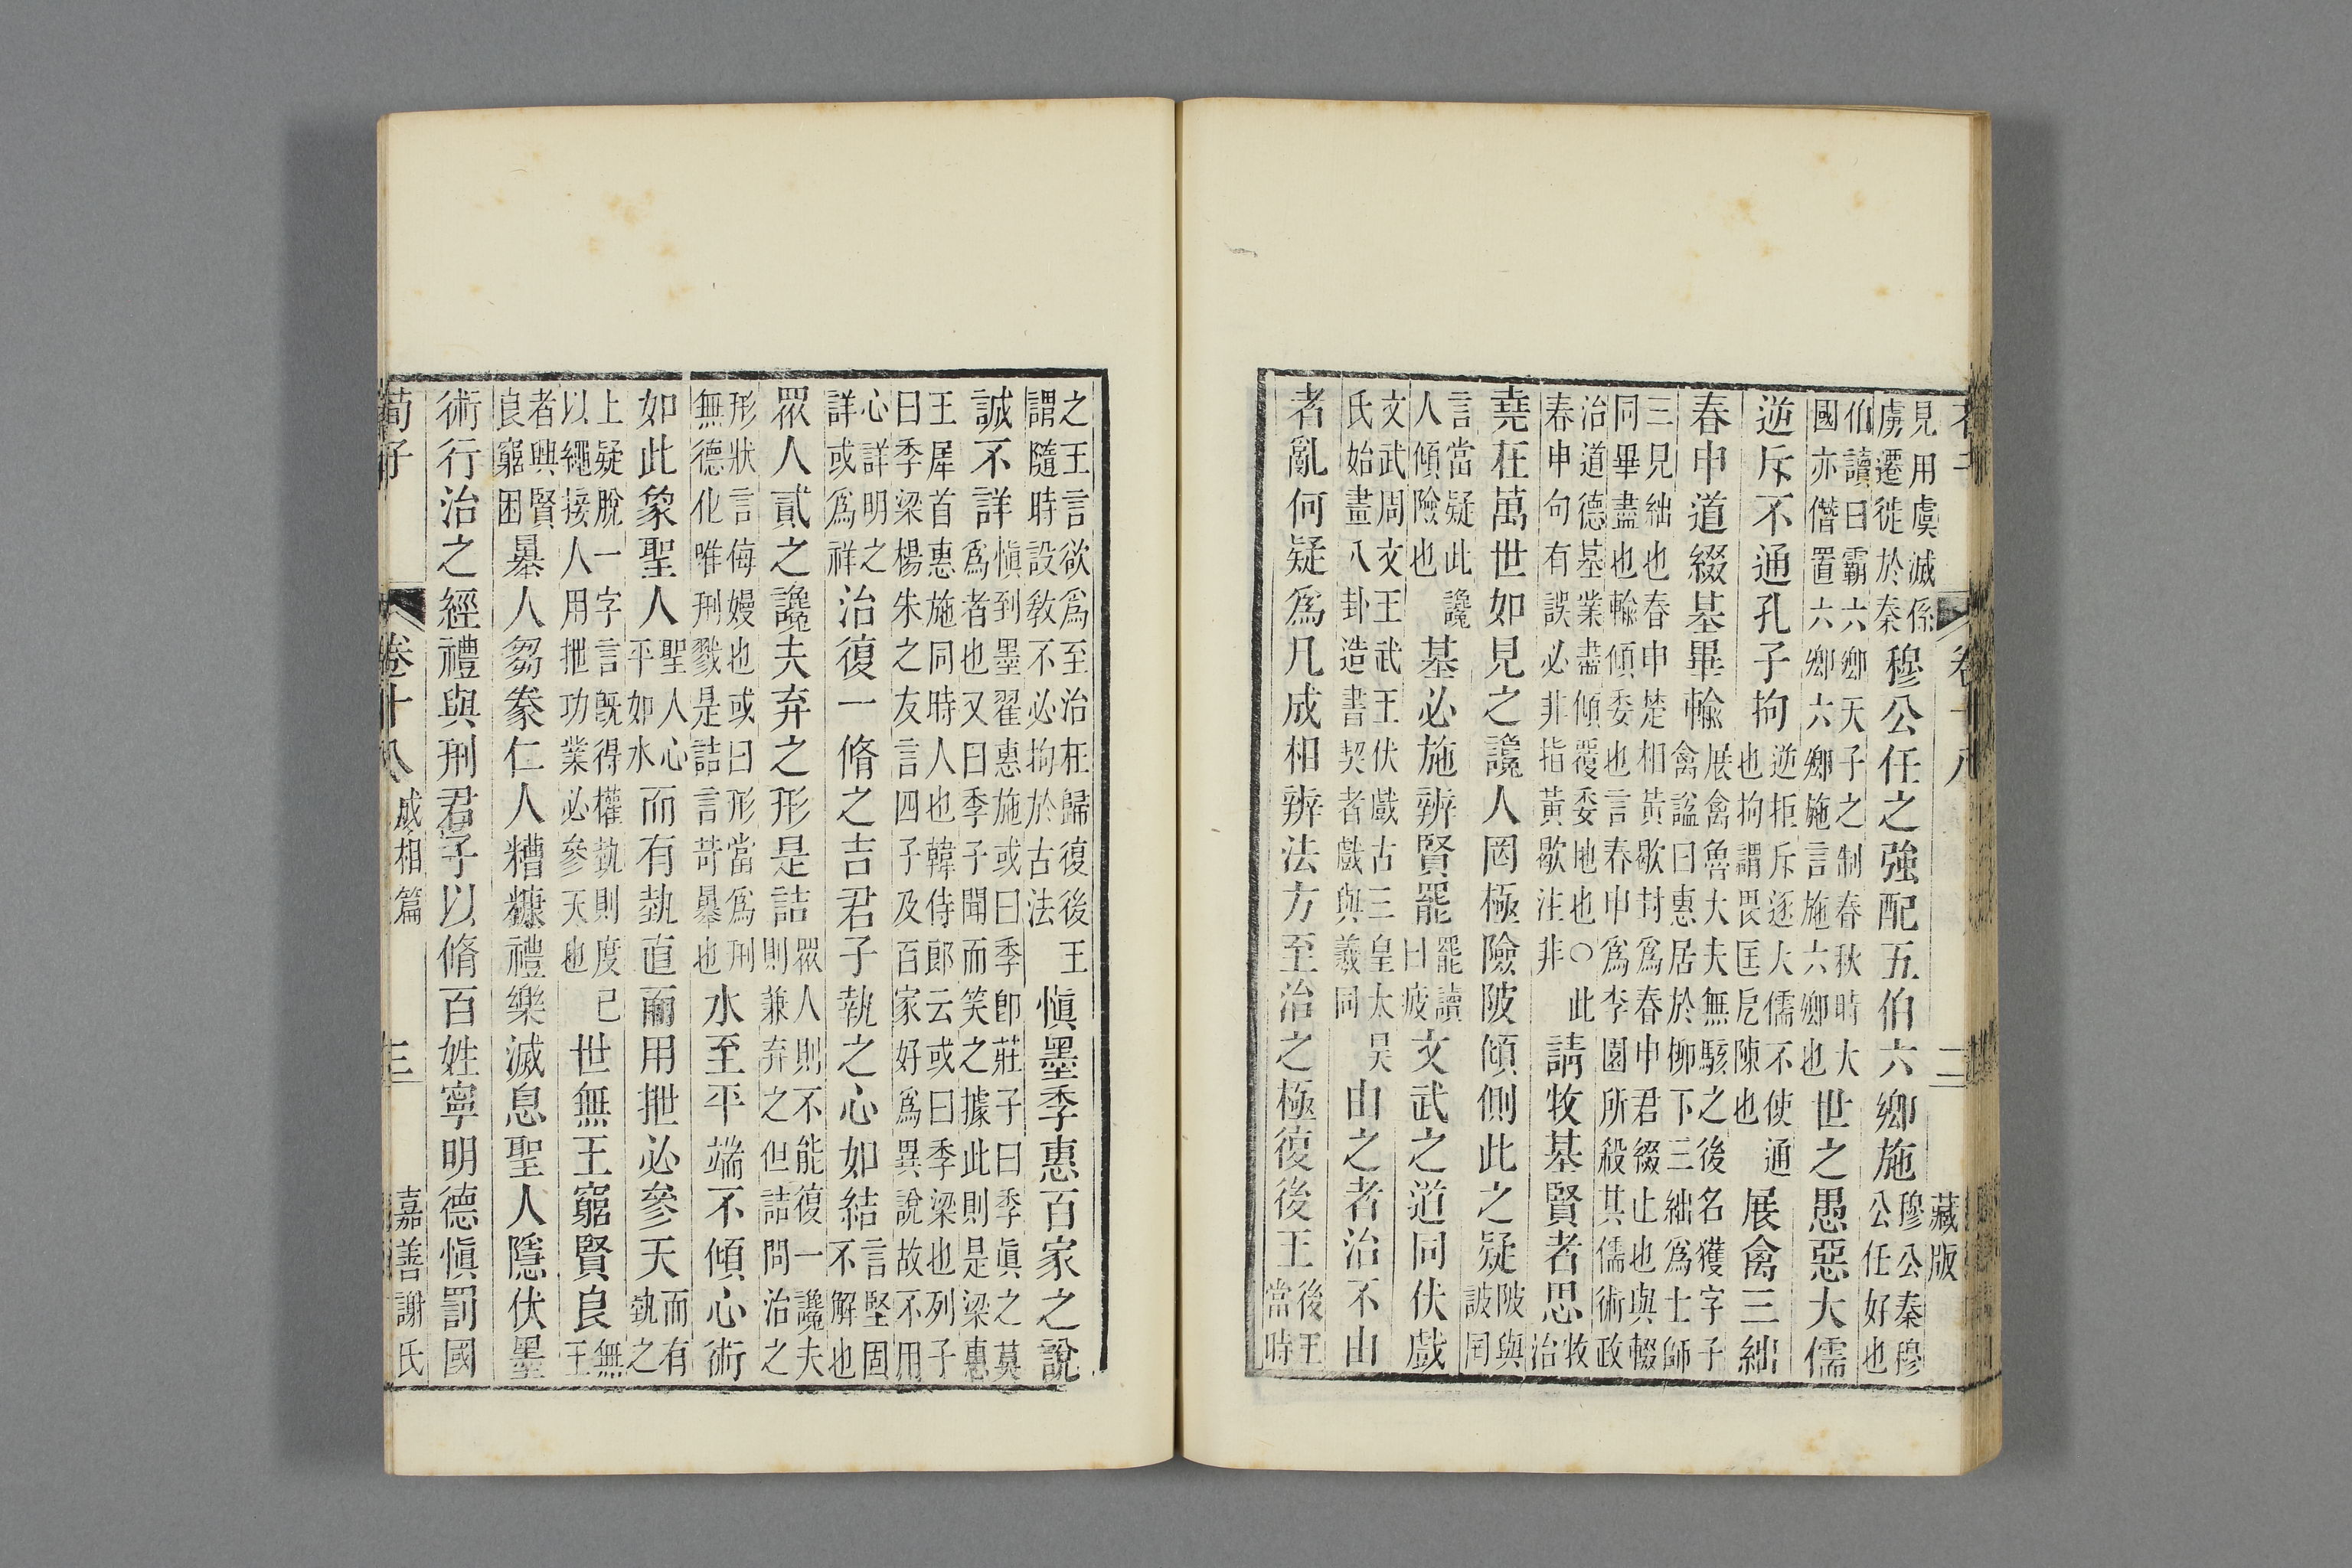 見用虞滅係虜遷徙於秦穆公任之強配五伯六卿施穆公秦穆公任好也
伯讀曰霸六卿天子之制春秋時大國亦僭置六卿六卿施言施六卿也世之愚惡大儒
逆斥不通孔子拘逆拒斥逐大儒不使通也拘謂畏匡戹陳也展禽三絀
春申道綴基畢輸展禽魯大夫無駭之後名獲字子禽謚曰惠居於柳下三絀爲士師
三見絀也春申楚相黃歇封爲春申君綴止也與輟同畢盡也輸傾委也言春申爲李園所殺其儒術政
治道德基業盡傾覆委地也○此春申句有誤必非指黃歇注非請牧基賢者思牧治
堯在萬世如見之讒人罔極險陂傾側此之疑陂與詖同
言當疑此讒人傾險也基必施辨賢罷罷讀曰疲文武之道同伏戲
文武周文王武王伏戲古三皇太昊氏始畫八卦造書契者戲與羲同由之者治不由
者亂何疑爲凡成相辨法方至治之極復後王後王當時
卷十八
二
藏版
之王言欲爲至治在歸復後王謂隨時設教不必拘於古法愼墨季惠百家之說
誠不詳愼到墨翟惠施或曰季卽莊子曰季眞之莫爲者也又曰季子聞而笑之據此則是梁惠
王犀首惠施同時人也韓侍郎云或曰季梁也列子曰季梁楊朱之友言四子及百家好爲異說故不用
心詳明之詳或爲祥治復一脩之吉君子執之心如結言堅固不解也
眾人貳之讒夫弃之形是詰眾人則不能復一讒夫則兼弃之但詰問治之
形狀言侮嫚也或曰形當爲刑無德化唯刑戮是詰言苛暴也水至平端不傾心術
如此象聖人聖人心平如水而有埶直而用抴必參天而有埶之
上疑脫一字言旣得權埶則度己以繩接人用抴功業必參天也世無王窮賢良無王
者興賢良窮困暴人芻豢仁人糟糠禮樂滅息聖人隱伏墨
術行治之經禮與刑君子以脩百姓寧明德愼罰國
荀子
卷十八
成相篇
三
嘉善謝氏